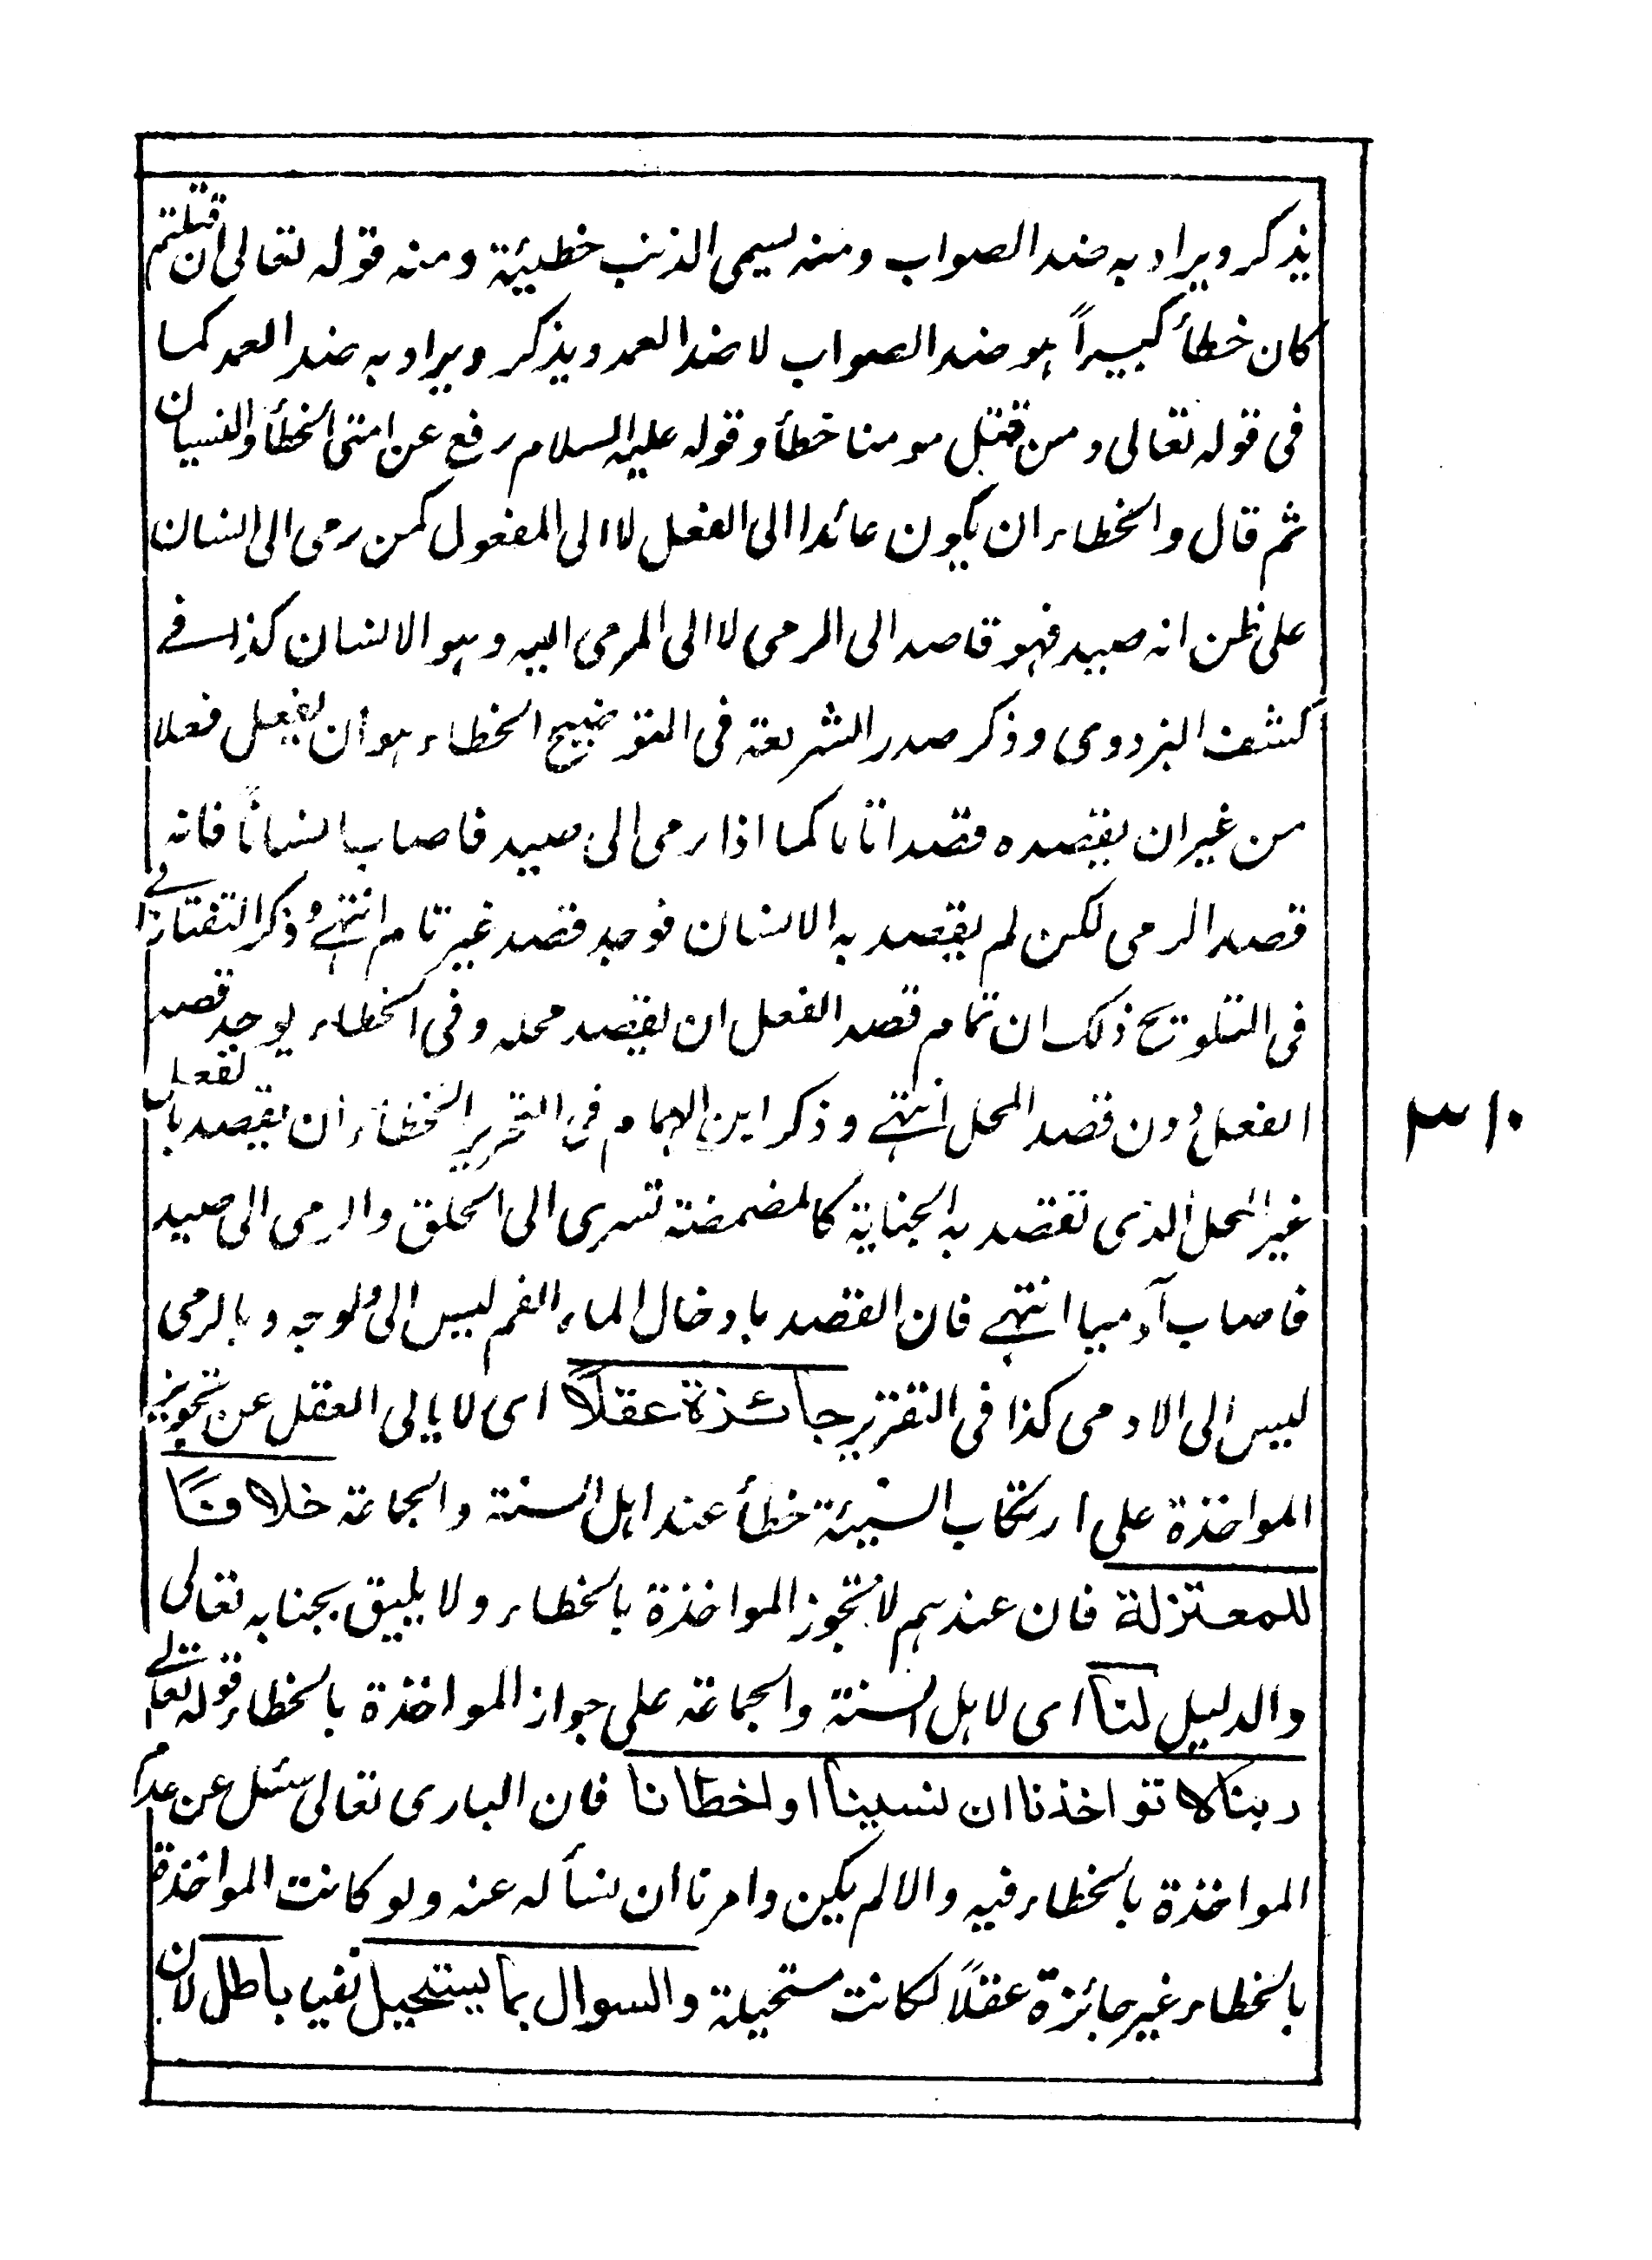 يذكر ويراد به ضد الصواب ومنه يسمى الذنب خطيئة ومنه قوله تعالى ان قتلتم
كان خطأ كبيراً هو ضد الصواب لا ضد العمد ويذكر ويراد به ضد العمد كما
فى قوله تعالى ومن قتل مومنا خطأ وقوله عليه السلام رفع عن امتى الخطأ والنسيان
ثم قال والخطاء ان يكون عائدا الى الفعل لا الى المفعول كمن رمى الى انسان
على ظن انه صيد فهو قاصد الى الرمى لا الى المرمى اليه وهو الانسان كذا فے
كشف البزدوى وذكر صدر الشريعة فى التوضيح الخطاء هو ان يفعل فعلا
من غير ان يقصده قصدا تاما كما اذا رمى الى صيد فاصاب انساناً فانه
قصد الرمى لكن لم يقصد به الانسان فوجد قصد غير تام انتهے وذكر التفتازانے
فى التلويح ذلك ان تمام قصد الفعل ان يقصد محله وفى الخطاء يوجد قصد
الفعل دون قصد المحل انتهے وذكر ابن الهمام فى التحرير الخطاء ان يقصد بالفعل
غير المحل الذى تقصد به الجناية كالمضمضة تسرى الى الحلق والرمى الى صيد
فاصاب آدميا انتهے فان القصد بادخال الماء الفم ليس الى ولوجه وبالرمى
ليس الى الادمى كذا فى التقرير جائزة عقلاً اى لا يابى العقل عن تجويز
المواخذة على ارتكاب السيئة خطأ عند اهل السنة والجماعة خلافاً
للمعتزلة فان عندهم لا تجوز المواخذة بالخطاء ولا يليق بجنابه تعالى
والدليل لنا اى لاهل السنة والجماعة على جواز المواخذة بالخطاء قوله تعالے
ربنا لا تواخذنا ان نسينا او اخطانا فان البارى تعالى سئل عن عدم
المواخذة بالخطاء فيه والا لم يكن وامرنا ان نسأله عنه ولو كانت المواخذة
بالخطاء غير جائزة عقلاً لكانت مستحيلة والسوال بما يستحيل نفيا باطل لان
٣١٠